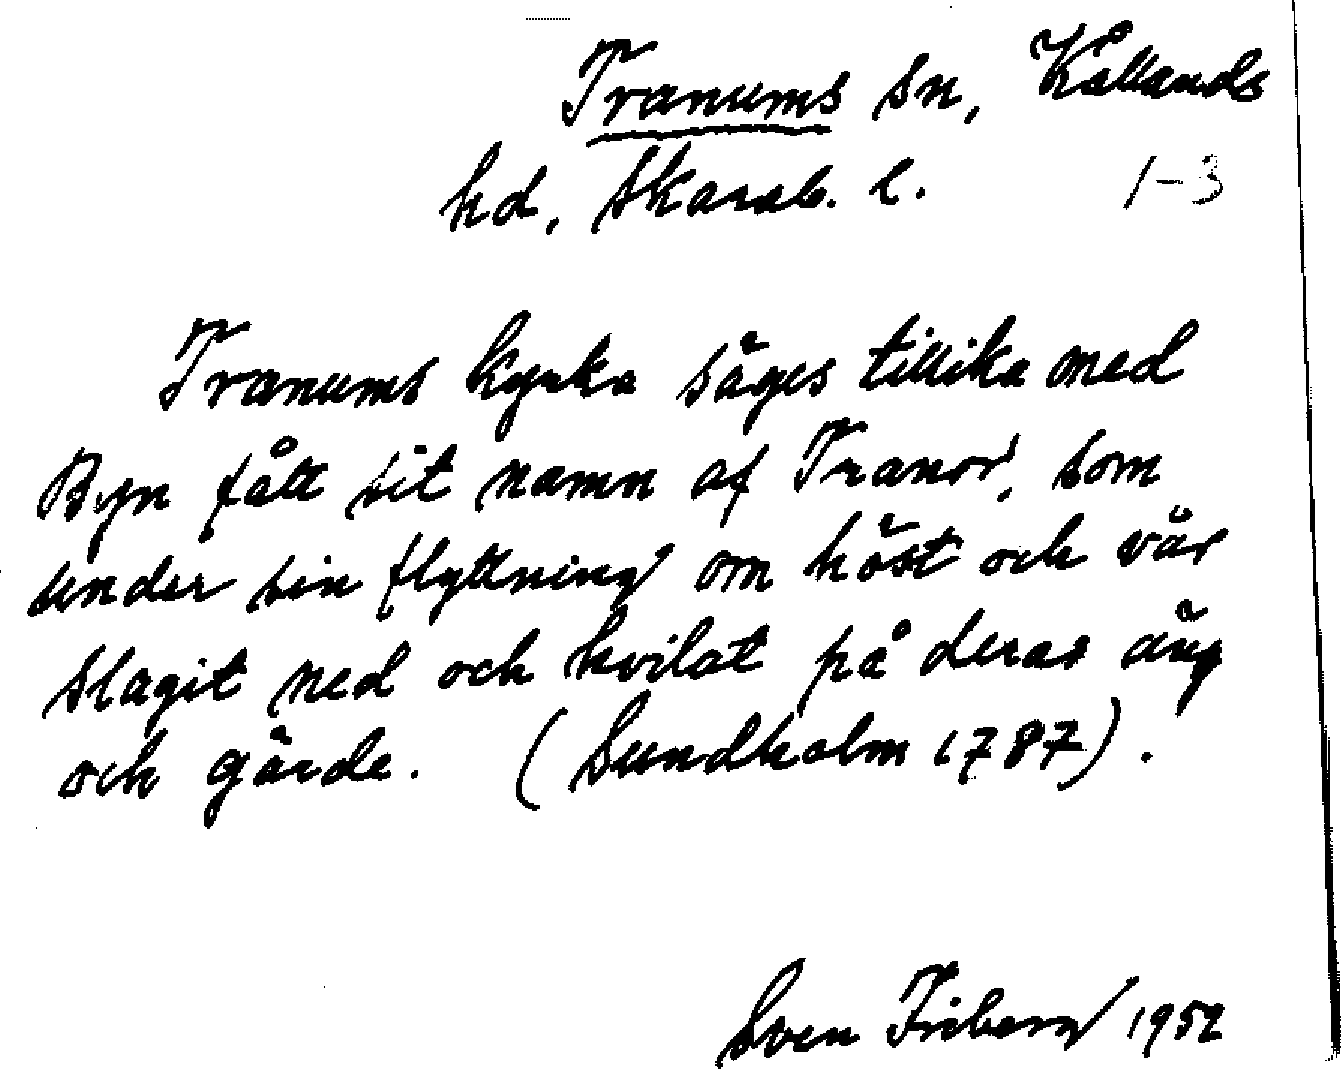 Tranums sn, Kållands
hd, Skarab. l.
1-3
Tranums kyrka säges tillika med
Byn fått sit namn af Tranor, som
under sin flyttning om höst och vår
slagit ned och hvilat på deras äng
och gärde. (Sundholm 1787).
Sven Friberg 1952